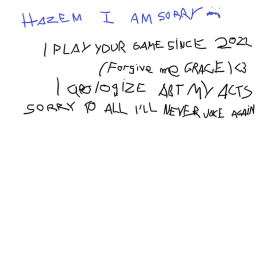 HAZEM I AM SORRY
I PLAY YOUR GAME SINCE 2022
(Forgive me GRACE) <3
I apologizE ABT MY ACTS
SORRY TO ALL I'LL NEVER JOKE AGAIN